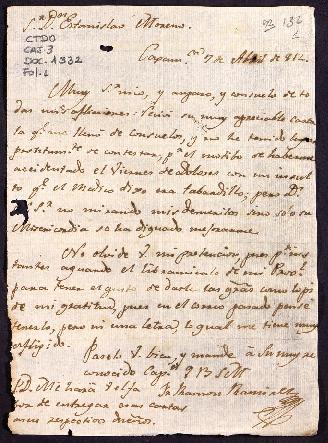 S.r D.n Estanislao Moreno.
132
CTDO
CAJ 3
DOC. 1332
Fol. 1
7 de Abril de 812.
Muy S.r mio, y amparo, y consuelo de to
das mis aflicciones: Recivi su muy apreciable carta
la q.e me llenó de consuelos, y no he tenido lugar
de contestar, p.r el motibo de haberme
accidentado el Viernes de dolores con un insul
q.e el Medico dixo era tabardillo; pero D.s
S.r no mirando mis demeritos sino solo su
Misericordia se ha dignado mejorarme.
No olvide V. mi pretencion, pues p.r ins
tantes aguardo el libramiento de mi
para tener el gusto de darle las grās
de mi gratitud, pues en el correo pasado pensé
tenerlo, pero ni una letra, lo qual me tiene muy
afligido.
Paselo V. bien, y mande à Su muy re
conocido Cap.n Q B S M
Fr. Ramon
P.D. Me hará V. el fa
vor de entregar esas cartas
a sus respectivos dueños.